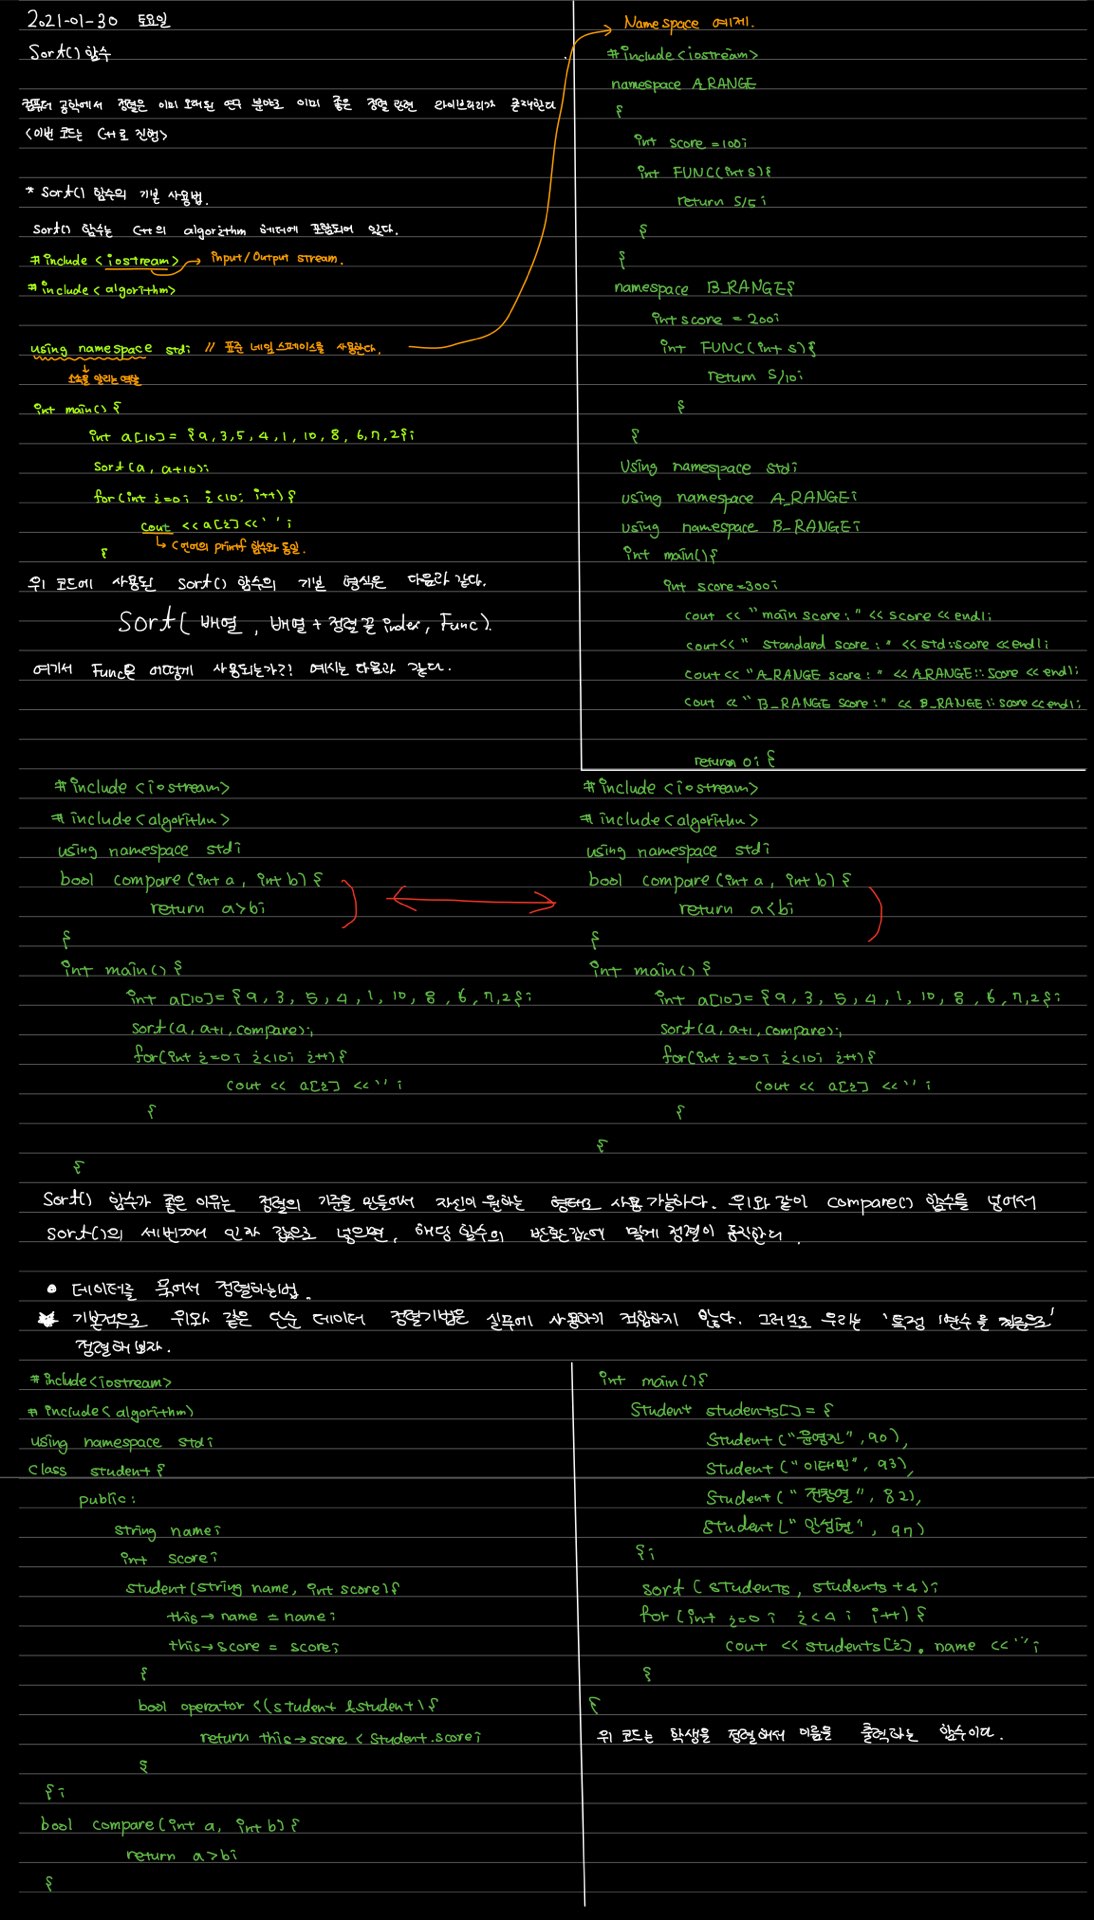 2021-01-30 토요일
Sort() 함수
컴퓨터 공학에서 정렬은 이미 오래된 연구 분야로 이미 좋은 정렬 관련 라이브러리가 존재한다
<이번 코드는 C++로 진행>
* Sort() 함수의 기본 사용법.
Sort() 함수는 C++의 algorithm 헤더에 포함되어 있다.
#include <iostream> → Input/Output stream.
#include <algorithm>
using namespace std; // 표준 네임 스페이스를 사용한다.
소속을 알리는 역할
int main() {
int a[10] = {9, 3, 5, 4, 1, 10, 8, 6, 7, 2};
Sort(a, a+10);
for(int i=0; i<10; i++){
cout << a[i] << ' ';
↳ C언어의 printf 함수와 동일.
}
위 코드에 사용된 Sort() 함수의 기본 형식은 다음과 같다.
Sort( 배열, 배열 + 정렬 끝 index, Func).
여기서 Func은 어떻게 사용되는가?! 예시는 다음과 같다.
Namespace 예제.
#include <iostream>
namespace A_RANGE
{
int score = 100;
int FUNC(int s){
return S/5;
}
}
namespace B_RANGE{
int score = 200;
int FUNC(int s){
return S/10;
}
}
Using namespace std;
using namespace A_RANGE;
using namespace B_RANGE;
int main(){
int score=300;
cout << "main score:" << score << endl;
cout << " standard score:" << std::score << endl;
cout << "A_RANGE score:" << A_RANGE::score << endl;
cout << "B_RANGE score:" << B_RANGE::score << endl;
return 0; }
#include <iostream>
#include <algorithm>
using namespace std;
bool compare (int a, int b) {
return a>b;
}
int main() {
int a[10] = {9, 3, 5, 4, 1, 10, 8, 6, 7, 2};
Sort(a, a+1, compare);
for(int i=0; i<10; i++){
cout << a[i] << ' ';
}
}
#include <iostream>
#include <algorithm>
using namespace std;
bool compare (int a, int b) {
return a<b;
}
int main() {
int a[10] = {9, 3, 5, 4, 1, 10, 8, 6, 7, 2};
Sort(a, a+1, compare);
for(int i=0; i<10; i++){
cout << a[i] << ' ';
}
}
Sort() 함수가 좋은 이유는 정렬의 기준을 만들어서 자신이 원하는 형태로 사용 가능하다. 위와 같이 compare() 함수를 넣어서
Sort()의 세번째 인자 값으로 넣으면, 해당 함수의 반환값에 맞게 정렬이 동작한다.
• 데이터를 묶어서 정렬하는법.
★ 기본적으로 위와 같은 단순 데이터 정렬기법은 실무에 사용하기 적합하지 않다. 그러므로 우리는 '특정 변수를 기준으로'
정렬해 보자.
#include <iostream>
#include <algorithm>
using namespace std;
Class student {
public:
string name;
int score;
student(string name, int score){
this→name = name;
this→score = score;
}
bool operator <(student &student){
return this→score < student.score;
}
};
bool compare (int a, int b) {
return a>b;
}
int main(){
Student students[] = {
Student ("윤영진", 90),
Student ("이태민", 93),
Student ("전창열", 82),
Student ("안성현", 97)
};
sort (students, students+4);
for (int i=0; i<4; i++) {
cout << students[i].name << ' ';
}
}
위 코드는 학생을 정렬해서 이름을 출력하는 함수이다.